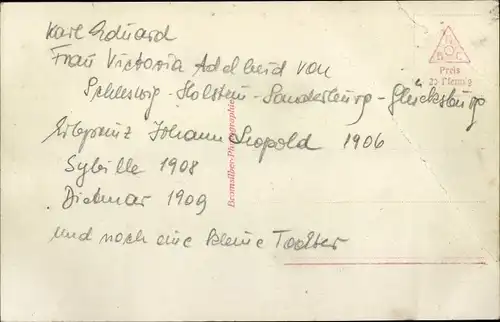 Karl Eduard
Frau Victoria Adelheid von
Schleswig-Holstein-Sonderburg-Glücksburg
Erbprinz Johann Leopold 1906
Sybille 1908
Dietmar 1909
und noch eine kleine Tochter
Bromsilber-Photographie
Preis
25 Pfennig